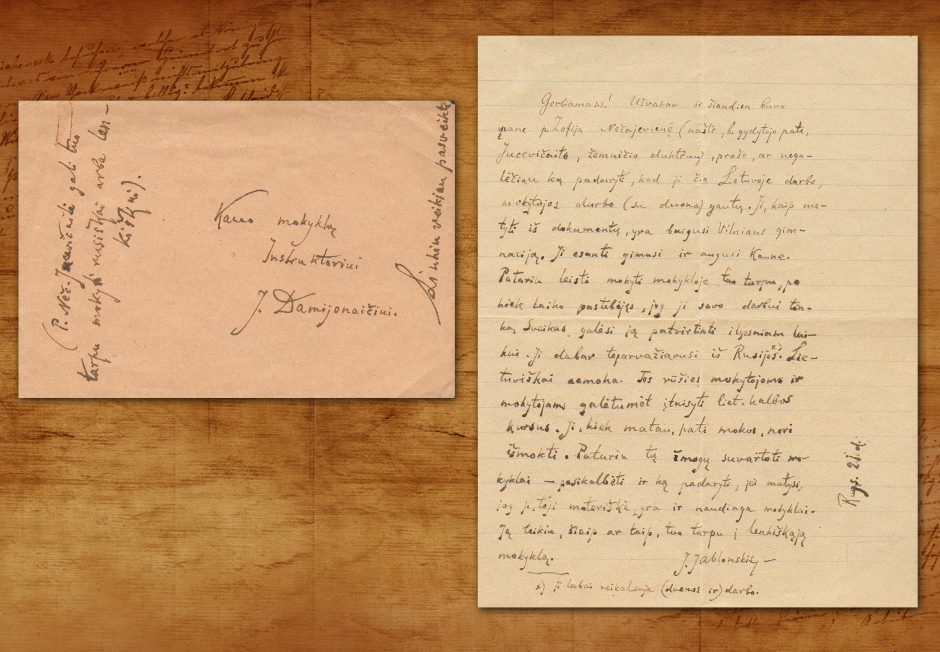 (P. Neč. Jucevičaitė gali tuo
tarpu mokyti rusiškai arba len-
kiškai).
Kauno mokyklų
Instruktoriui
J. Damijonaičiui.
Linkiu veikiau pasveikti
Gerbiamasis! Užvakar ir šiandien buvo
pane p. Zofija Nečajevienė (našlė, gydytojo pati,
Jucevičaitė, žemaičio duktė), prašo, ar nega-
lėčiau ką padaryti, kad ji čia Lietuvoje darbo,
mokytojos darbo (su duona) gautų. Ji, kaip ma-
tyti iš dokumentų, yra baigusi Vilniaus gim-
naziją. Ji esanti gimusi ir augusi Kaune.
Patariu leisti mokyti mokykloje tuo tarpu, po
kiek laiko pastebėjęs, jog ji savo darbui tin-
ka, Sveikas galėsi ją patvirtinti ilgesniam lai-
kui. Ji dabar teparvažiavusi iš Rusijos x). Lie-
tuviškai nemoka. Tos rūšies mokytojoms ir
mokytojams galėtumėt įtaisyti liet. kalbos
kursus. Ji, kiek matau, pati mokos, nori
išmokti. Patariu tą žmogų suvartoti mo-
kyklai – pasikalbėti ir ką padaryti, jei matysi,
jog ji, toji moteriškė, yra ir naudinga mokyklai.
Ją teikia, šiaip ar taip, tuo tarpu į lenkiškąją
mokyklą.
J. Jablonskis –
x) Ji labai reikalauja (duonos ir) darbo.
Rugs. 21 d.